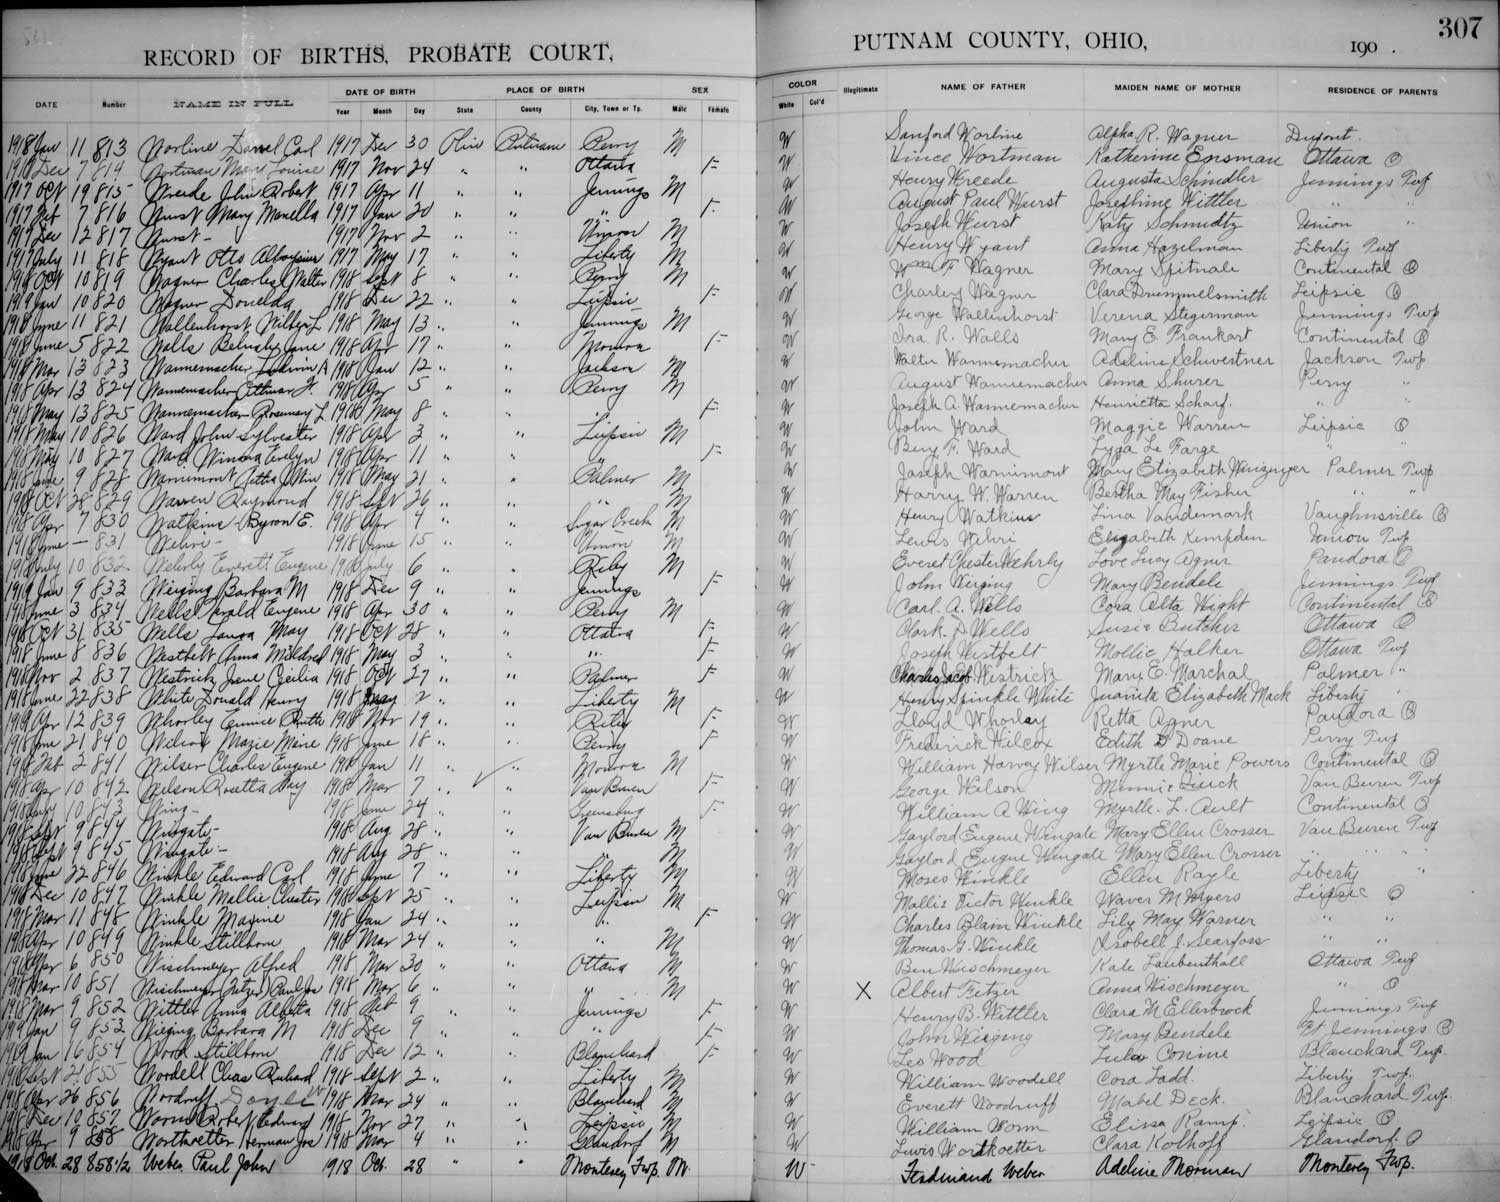 RECORD OF BIRTHS, PROBATE COURT, PUTNAM COUNTY, OHIO, 190 . 307
DATE Number NAME IN FULL DATE OF BIRTH PLACE OF BIRTH SEX COLOR Illegitimate NAME OF FATHER MAIDEN NAME OF MOTHER RESIDENCE OF PARENTS
Year Month Day State County City, Town or Tp. Male Female White Col'd
1918 Jan 11 813 Worline Darrel Carl 1917 Dec 30 Ohio Putnam Perry M W Sanford Worline Alpha R. Wagner Dupont
1918 Dec 7 814 Wortman Mary Louise 1917 Nov 24 " " Ottawa F W Vince Wortman Katherine Ottawa O
1917 Oct 19 815 Wreede John Robert 1917 Apr 11 " " Jennings M W Henry Wreede Augusta Schindler Jennings Twp
1917 Feb 7 816 Wurst Mary Monella 1917 Jan 20 " " " F W August Paul Wurst Josephine Wittler " "
1917 Dec 12 817 Wurst - 1917 Nov 2 " " Union M W Joseph Wurst Katy Schmidtz Union "
1917 July 11 818 Wyant Otto Alloysius 1917 May 17 " " Liberty M W Henry Wyant Anna Hazelman Liberty Twp
1918 Oct 10 819 Wagner Charles Walter 1918 Sept 8 " " Perry M W Wm F. Wagner Mary Spitnale Continental O
1919 Jan 10 820 Wagner Donelda 1918 Dec 22 " " Leipsic F W Charley Wagner Clara Drummelsmith Leipsic O
1918 June 11 821 Wallenhorst Wilbur L 1918 May 13 " " Jennings M W George Wallenhorst Verena Stegerman Jennings Twp
1918 June 5 822 Walls Jane 1918 Apr 17 " " Monroe F W Ira R. Walls Mary E. Frankart Continental O
1918 Mar 13 823 Wannemacher A 1918 Jan 12 " " Jackson M W Walter Wannemacher Adeline Schwestner Jackson Twp
1918 Apr 13 824 Wannemacher Ottmar F. 1918 Apr 5 " " Perry M W August Wannemacher Anna Shurer Perry "
1918 May 13 825 Wannemacher Rosemary L 1918 May 8 " " " F W Joseph A. Wannemacher Henrietta Scharf. " "
1918 May 10 826 Ward John Sylvester 1918 Apr 3 " " Leipsic M W John Ward Maggie Warren Leipsic O
1918 May 10 827 Ward Winona Evelyn 1918 Apr 11 " " " F W Benj F. Ward Lyga Le Farge " "
1918 June 9 828 Warnimont 1918 May 21 " " Palmer M W Joseph Warnimont Mary Elizabeth Palmer Twp
1918 Oct 28 829 Warren Raymond 1918 Sept 26 " " " M W Harry W. Warren Bertha May Fisher " "
1918 Apr 7 830 Watkins Byron E. 1918 Apr 4 " " Sugar Creek M W Henry Watkins Lina Vandemark Vaughnsville O
1918 June - 831 Wehri - 1918 June 15 " " Union M W Lewis Wehri Elizabeth Kempden Union Twp
1918 July 10 832 Wehrly Everett Eugene 1918 July 6 " " Riley M W Everet Chester Wehrly Love Lucy Agner Pandora O
1919 Jan 9 833 Weiging Barbara M 1918 Dec 9 " " Jennings F W John Weiging Mary Bendele Jennings Twp
1918 June 3 834 Wells Eugene 1918 Apr 30 " " Perry M W Carl. A. Wells Cora Alta Wight Continental O
1918 Oct 31 835 Wells Laura May 1918 Oct 28 " " Ottawa F W Clark. D Wells Susie Butcher Ottawa O
1918 June 8 836 Westbelt Anna Mildred 1918 May 3 " " " F W Joseph Westbelt Mollie Halker Ottawa Twp
1918 Nov 2 837 Westrick Jane Cecilia 1918 Oct 27 " " Palmer F W Charles Jacob Westrick Mary E. Marchal Palmer "
1918 June 22 838 White Donald Henry 1918 May 2 " " Liberty M W Henry Spinkle White Juanita Elizabeth Mack Liberty "
1919 Apr 12 839 Whorley Eunice Ruth 1918 Nov 19 " " Riley F W Lloyd Whorley Retta Agner Pandora O
1918 June 21 840 Wilcox Marie 1918 June 18 " " Perry F W Frederick Wilcox Edith D Doane Perry Twp
1918 Feb 2 841 Wilser Charles Eugene 1918 Jan 11 " " Monroe M W William Harvey Wilser Myrtle Marie Powers Continental O
1918 Apr 10 842 Wilson Rosetta May 1918 Mar 7 " " Van Buren F W George Wilson Minnie Van Buren Twp
1918 July 10 843 Wing - 1918 June 24 " " Greensburg F W William A Wing Myrtle. L. Ault Continental O
1918 Sept 9 844 Wingate - 1918 Aug 28 " " Van Buren M W Gaylord Eugene Wingate Mary Ellen Crosser Van Buren Twp
1918 Sept 9 845 Wingate - 1918 Aug 28 " " " M W Gaylord Eugene Wingate Mary Ellen Crosser " "
1918 June 22 846 Winkle Edward Carl 1918 June 7 " " Liberty M W Moses Winkle Ellen Rayle Liberty "
1918 Dec 10 847 Winkle Mallie Chester 1918 Sept 25 " " Leipsic M W Mallie Victor Winkle Waver M Myers Leipsic O
1918 Mar 11 848 Winkle Maxine 1918 Jan 24 " " " F W Charles Blain Winkle Lily May Warner " "
1918 Apr 10 849 Winkle Stillborn 1918 Mar 24 " " " M W Thomas G. Winkle Isobell J. Searfoss " "
1918 Apr 6 850 Wischmeyer Alfred 1918 Mar 30 " " Ottawa M W Ben Wischmeyer Kate Laubenthall Ottawa Twp
1918 Mar 10 851 Wischmeyer (Fetzer) 1918 Mar 6 " " " M W X Albert Fetzer Anna Wischmeyer " O
1918 Mar 9 852 Wittler Anna Alberta 1918 Feb 9 " " Jennings F W Henry B. Wittler Clara M Ellerbrock Jennings Twp
1919 Jan 9 853 Wieging Barbara M 1918 Dec 9 " " " F W John Wieging Mary Bendele Ft Jennings O
1919 Jan 16 854 Wood Stillborn 1918 Dec 12 " " Blanchard F W Leo Wood Lula Conine Blanchard Twp.
1918 Sept 21 855 Wordell Chas Richard 1918 Sept 2 " " Liberty M W William Woodell Cora Ladd. Liberty Twp.
1918 Apr 26 856 Woodruff 1918 Mar 24 " " Blanchard M W Everett Woodruff Mabel Deck. Blanchard Twp.
1918 Dec 10 857 Worm Robert Edward 1918 Nov 27 " " Leipsic M W William Worm Elissa Ramp. Leipsic O
1918 Apr 9 858 Workoetter Herman Jos 1918 Mar 4 " " Glandorf M W Lewis Workoetter Clara Kolhoff Glandorf. O
1918 Oct. 28 858 1/2 Weber Paul John 1918 Oct. 28 " " Monterey Twp. M. W Ferdinand Weber Adeline Morman Monterey Twp.